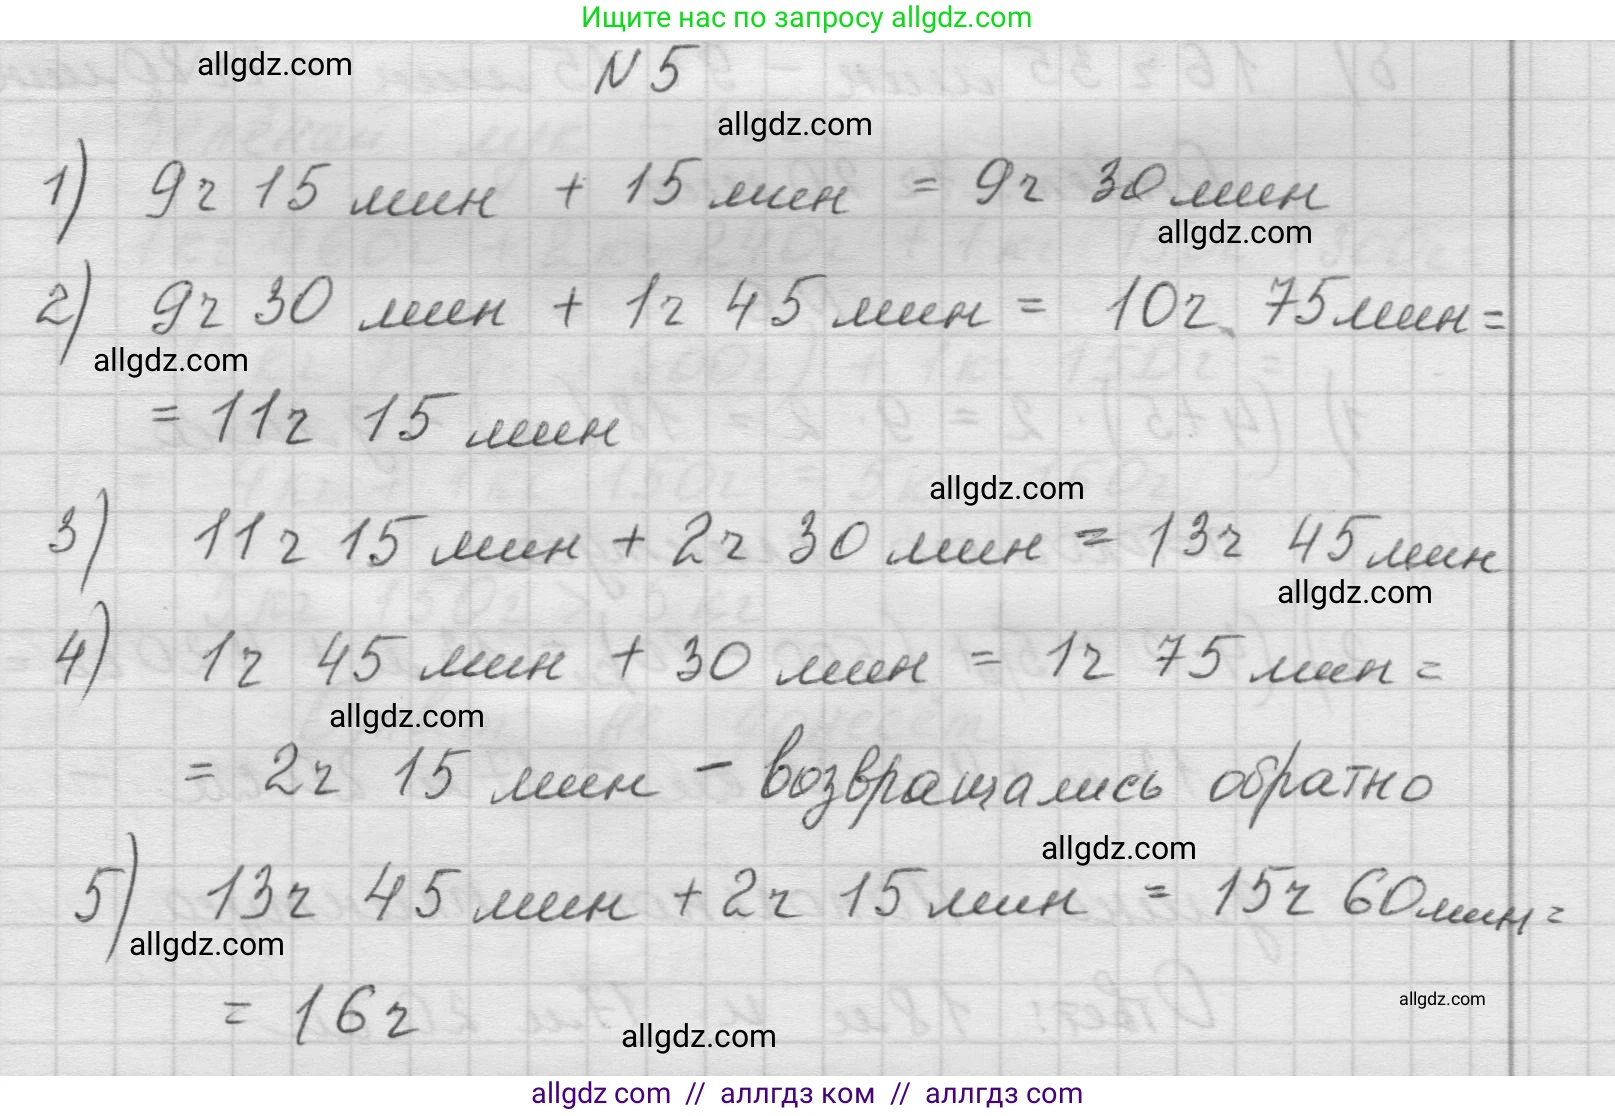 Ищите нас по запросу allgdz.com
allgdz.com
N 5
allgdz.com
1) 9ч 15 мин + 15 мин = 9ч 30 мин
allgdz.com
2) 9ч 30 мин + 1ч 45 мин = 10ч 75 мин =
allgdz.com
= 11ч 15 мин
allgdz.com
3) 11ч 15 мин + 2ч 30 мин = 13ч 45 мин
allgdz.com
4) 1ч 45 мин + 30 мин = 1ч 75 мин =
allgdz.com
= 2ч 15 мин - возвращались обратно
allgdz.com
5) 13ч 45 мин + 2ч 15 мин = 15ч 60 мин =
allgdz.com
= 16ч
allgdz.com
allgdz.com
allgdz com // аллгдз ком // аллгдз com